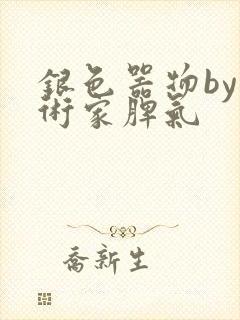 銀色器物by
術家脾氣
喬新生